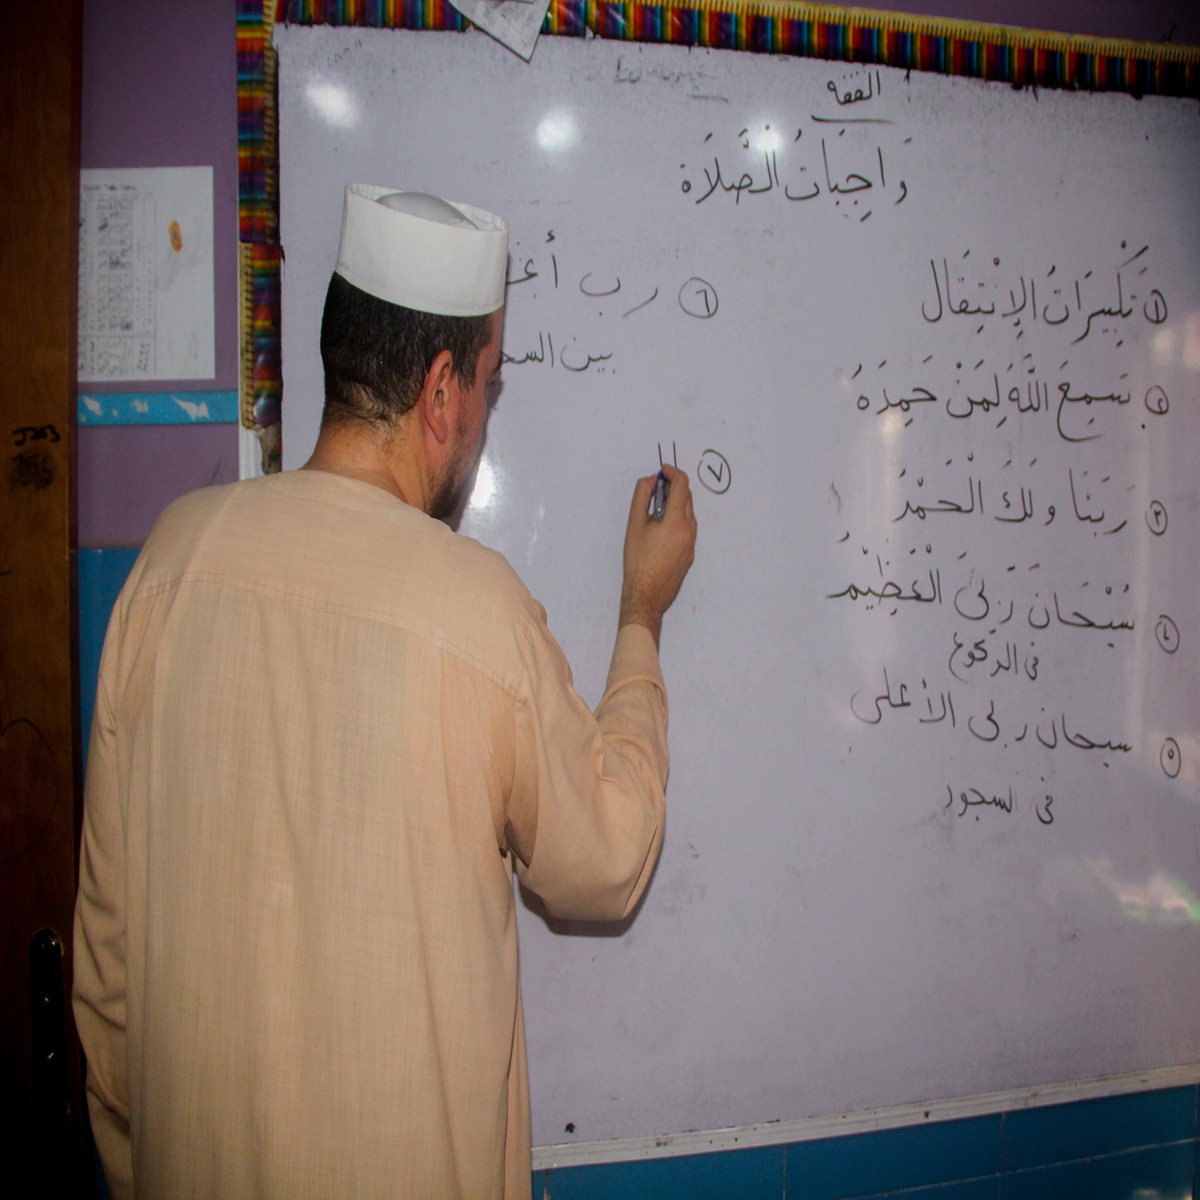 الفقه
وَاجِبَاتُ الصَّلَاة
١ تَكْبِيرَاتُ الْاِنْتِقَال
٢ سَمِعَ اللَّهُ لِمَنْ حَمِدَهُ
٣ رَبَنَا وَلَكَ الْحَمْدُ
٤ سُبْحَانَ رَبِّيَ الْعَظِيْمُ
فى الركوع
٥ سبحان ربى الأعلى
فى السجود
٦ رب
بين
٧